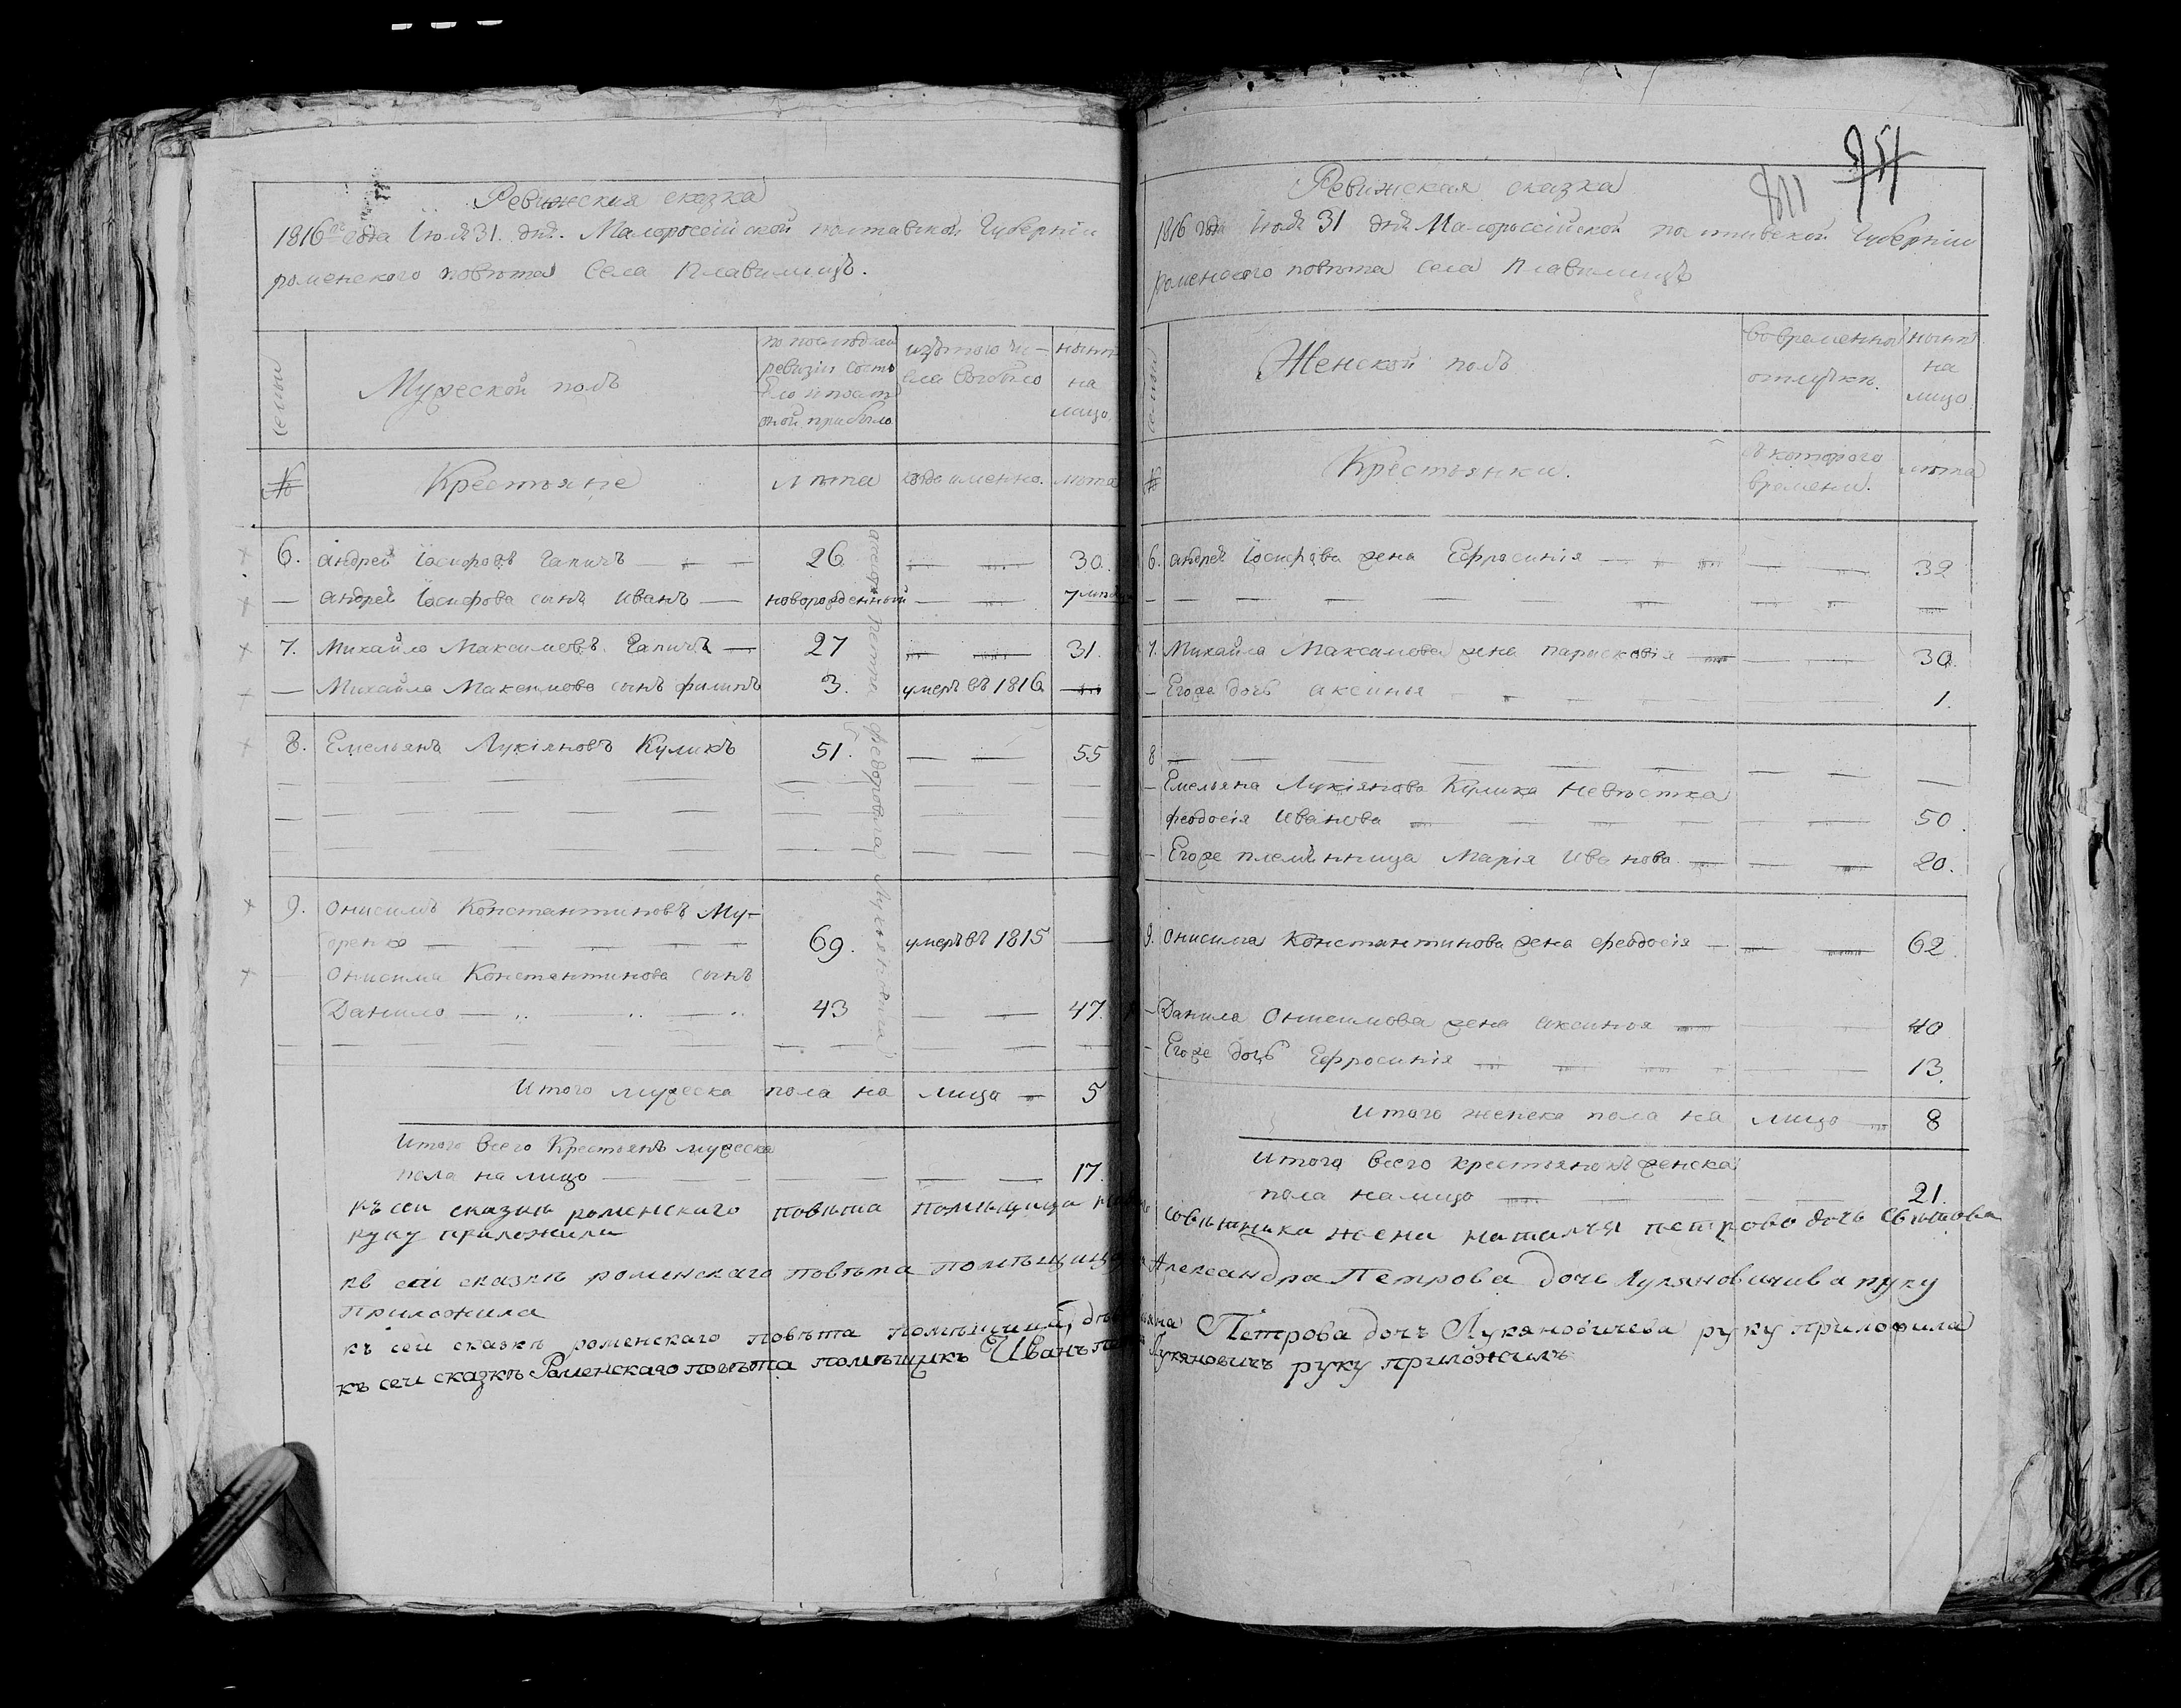 Ревижская сказка
1816го года Іюля 31. дня. Малороссійской полтавской Губерніи
роменского повѣта Села Плавинищъ.
семьи
Мужеской полъ
по последней
ревизіи состо
яло и посл
оной прибыло
изътого чи-
сла выбыло
нынѣ
на
лицо
№
Крестьяне
лѣта
когда именно.
лѣта
6. андрей Іосифовъ Гапичъ 26. 30.
андрей Іосифова сынъ иванъ новорожденный 7
7. Михайло Максимовъ Гапичъ 27 31.
Михайла Максимова сынъ филипъ 3. умеръ въ 1816
8. Емельянъ Лукіяновъ Куликъ 51. 55
9. Онисимъ Константиновъ Му-
оренко 69. умеръ въ 1815
Онисима Константинова сынъ
Данило 43 47.
Итого мужеска пола на лицо 5
Итого всего Крестьянъ мужеска
пола на лицо 17.
къ сеи сказки роменского повѣта помѣщица
руку приложила
къ сей сказкѣ роменскаго повѣта помѣщица
приложила
къ сей сказкѣ роменскаго повѣта помѣщица
къ сеи сказкѣ Роменскаго повѣта помѣщикъ Иванъ
Петра Федоровича
754
811
Ревижская сказка
1816 года Іюля 31 дня Малороссійской полтавской Губерніи
роменского повѣта села Плавинищъ
семьи
Женской полъ
во временной
отлучкѣ.
нынѣ
на
лицо.
№
Крестьянки.
съ которого
времени.
лѣта
6. андрей Іосифова жена Ефросинія 32
7. Михайла Максимова жена парасковія 30.
Егоже дочь аксинья 1.
8
Емельяна Лукіянова Кулика Невѣстка
феодосія Иванова 50.
Егоже племѣнница Марія Иванова 20.
9. Онисима Константинова жена феодосія 62.
Данила Онисимова жена аксинья 40
Егоже дочь Ефросинія 13.
Итого женска пола на лицо 8
Итого всего крестьянокъ женска
пола налицо 21.
совѣтника жена наталья петрова дочь
Александра Петрова дочь Лукяновичива руку
Петрова дочъ Лукяновичева руку приложила
Лукяновичъ руку приложилъ